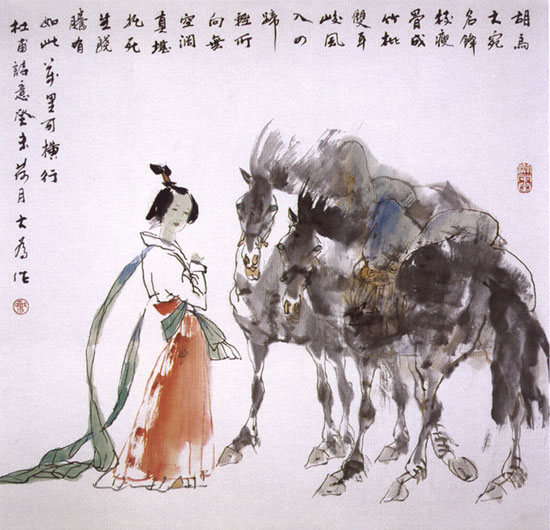 胡馬
大宛
名鋒
棱瘦
骨成
竹批
雙耳
峻風
入四
蹄
輕所
向無
空闊
真堪
托死
生驍
騰有
如此萬里可橫行
杜甫詩意癸未荷月大為作